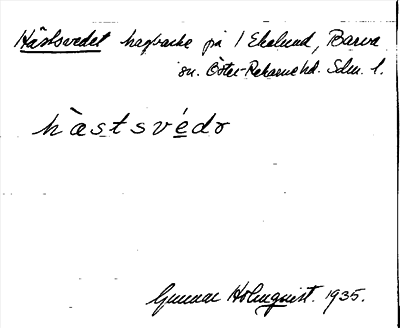 Hästsvedet hagbacke på 1 Ekelund, Barva
sn. Öster-Rekarne hd. Sdm. l.
hæ̀stsvédə
Gunnar Holmquist. 1935.